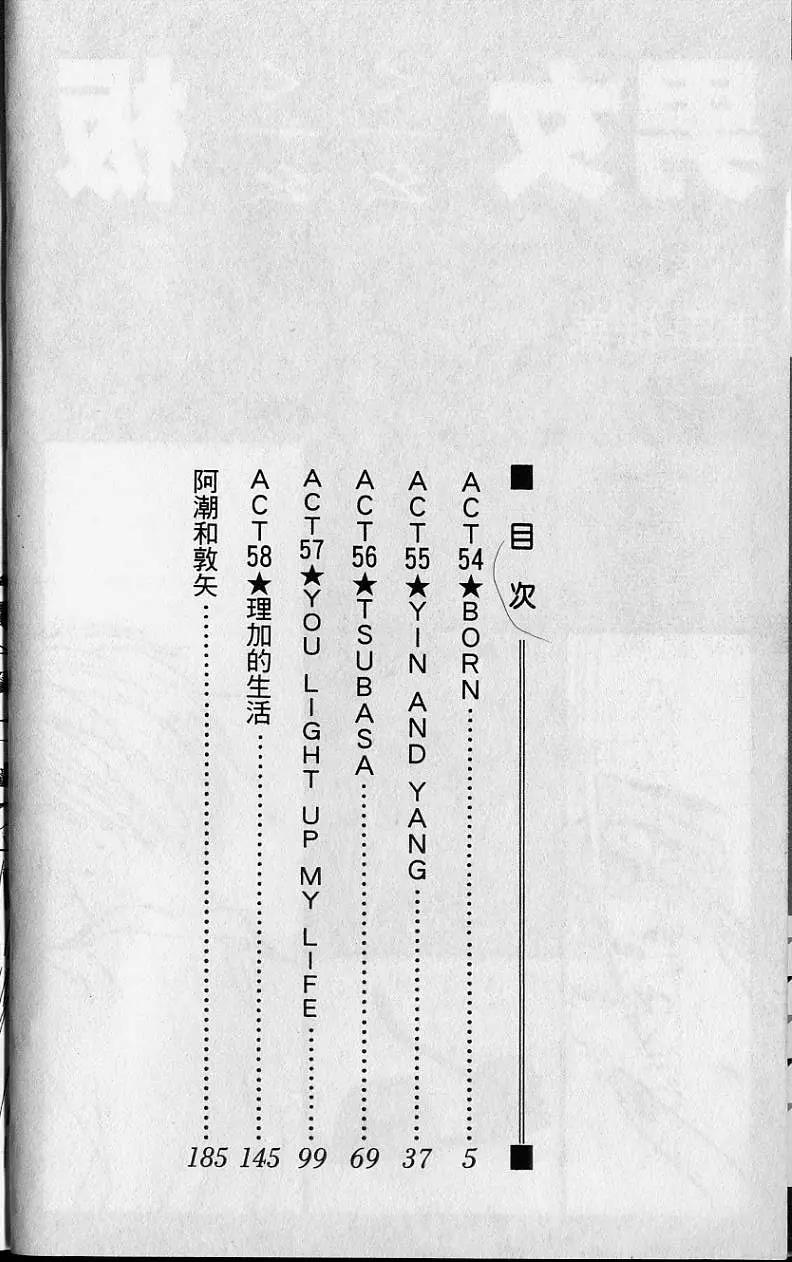 ■目次
ACT54★BORN……5
ACT55★YIN AND YANG……37
ACT56★TSUBASA……69
ACT57★YOU LIGHT UP MY LIFE……99
ACT58★理加的生活……145
阿潮和敦矢……185